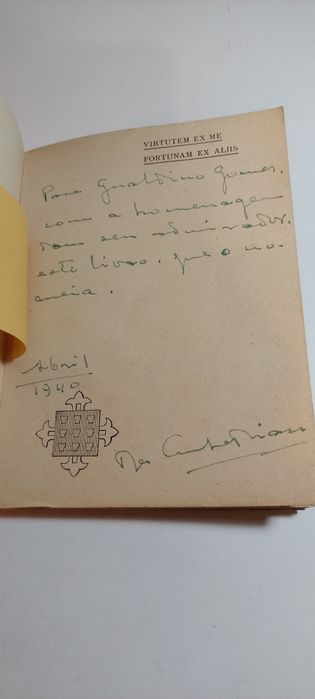 VIRTUTEM EX ME
FORTUNAM EX ALIIS
Para Gualdino Gomes,
com a homenagem
dum seu admirador,
este livro, que o no-
meia.
Abril
1940